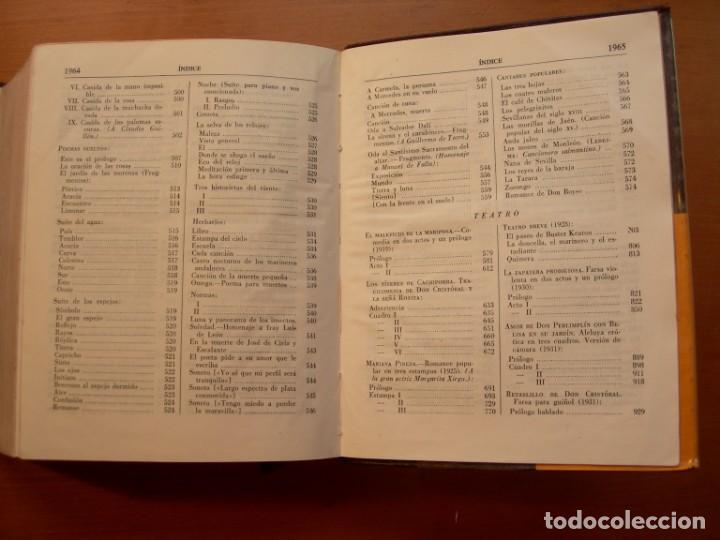 1964
ÍNDICE
VI. Casida de la mano imposi-
ble 500
VII. Casida de la rosa 500
VIII. Casida de la muchacha do-
rada 501
IX. Casida de las palomas os-
curas. (A Claudio Gui-
llén.) 502
POEMAS SUELTOS:
Este es el prólogo 507
La oración de las rosas 510
El jardín de las morenas (Frag-
mentos):
Pórtico 513
Acacia 513
Encuentro 514
Limonar 514
Suite del agua:
País 515
Temblor 515
Acacia 515
Curva 515
Colmena 515
Norte 516
Sur 516
Este 516
Oeste 516
Suite de los espejos:
Símbolo 519
El gran espejo 519
Reflejo 519
Rayos 519
Réplica 520
Tierra 520
Capricho 521
Sinto 521
Los ojos 521
Initium 522
Berceuse al espejo dormido 522
Aire 523
Confusión 524
Remanso 524
Noche (Suite para piano y voz
emocionada):
I. Rasgos 525
II. Preludio 525
Cometa 525
La selva de los relojes:
Maleza 526
Vista general 527
Él 527
Donde se ahoga el sueño 528
Eco del reloj 528
Meditación primera y última 529
La hora esfinge 529
Tres historietas del viento:
I
II
III
Herbarios:
Libro 531
Estampa del cielo
Escuela
Cada canción
Canto nocturno de los marineros
andaluces
Canción de la muerte pequeña
Omega.—Poema para muertos
Normas:
I 539
II 540
Luna y panorama de los insectos. 540
Soledad.—Homenaje a fray Luis
de León
En la muerte de José de Ciria y
Escalante
El poeta pide a su amor que le
escriba
Soneto [«Yo sé que mi perfil será
tranquilo»]
Soneto [«Largo espectro de plata
conmovida»] 545
Soneto [«Tengo miedo a perder
la maravilla»] 546
ÍNDICE
1965
A Carmela, la peruana 546
A Mercedes en su vuelo 547
Canción de cuna:
A Mercedes, muerta 548
Canción 548
Oda a Salvador Dalí
La sirena y el carabinero.—Frag-
mentos. (A Guillermo de Torre.) 553
Oda al Santísimo Sacramento del
altar.—Fragmento. (Homenaje
a Manuel de Falla):
Exposición
Mundo
Tierra y luna
[Siento]
[Con la frente en el suelo]
CANTARES POPULARES:
Las tres hojas 563
Los cuatro muleros 564
El café de Chinitas 565
Los pelegrinitos 565
Sevillanas del siglo XVIII 567
Las morillas de Jaén. (Canción
popular del siglo XV.) 568
Anda jaleo 569
Los mozos de Monleón. (Lanera-
ma: Cancionero salmantino.) 570
Nana de Sevilla 572
Los reyes de la baraja 572
La Tarara 573
Zorongo 574
Romance de Don Boyso 574
TEATRO
EL MALEFICIO DE LA MARIPOSA.—Co-
media en dos actos y un prólogo
(1919):
Prólogo 579
Acto I 582
— II 612
LOS TÍTERES DE CACHIPORRA. TRAGI-
COMEDIA DE DON CRISTÓBAL Y
LA SEÑÁ ROSITA:
Advertencia 633
Cuadro I 635
— II 643
— III 655
— IV 660
— V 665
— VI 672
MARIANA PINEDA.—Romance popu-
lar en tres estampas (1925). (A
la gran actriz Margarita Xirgu.)
Prólogo 691
Estampa I 693
— II 729
— III 770
TEATRO BREVE (1928):
El paseo de Buster Keaton 803
La doncella, el marinero y el es-
tudiante 806
Quimera 813
LA ZAPATERA PRODIGIOSA. Farsa vio-
lenta en dos actos y un prólogo
(1930):
Prólogo 821
Acto I 822
— II 850
AMOR DE DON PERLIMPLÍN CON BE-
LISA EN SU JARDÍN. Aleluya eró-
tica en tres cuadros. Versión de
cámara (1931):
Prólogo 889
Cuadro I 898
— II 911
— III 918
RETABLILLO DE DON CRISTÓBAL.
Farsa para guiñol (1931):
Prólogo hablado 929
todocoleccion.net